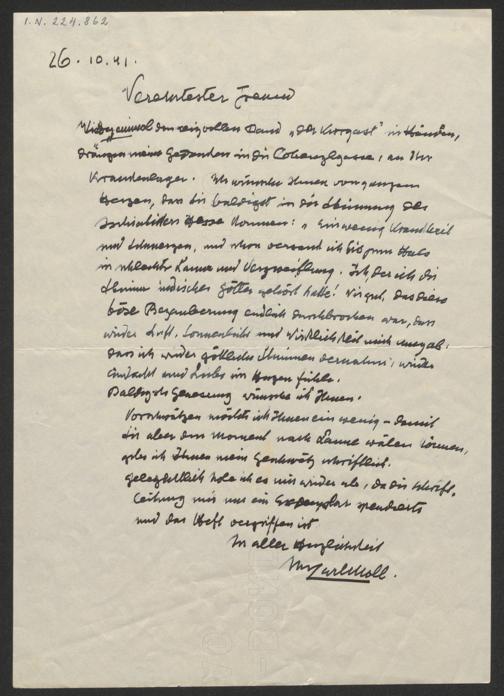 I.N. 224.862
26. 10. 41.
Verehrtester Freund
Wieder einmal den reizvollen Band „Der Kurgast" in Händen,
drängen meine Gedanken in die Cobenzlgasse, an Ihr
Krankenlager. Ich wünsche Ihnen von ganzem
Herzen, dass Sie baldigst in die Stimmung des
Hesse kommen: „Ein wenig Krankheit
und Schmerzen, und schon versank ich bis zum Hals
in schlechter Laune und Verzweiflung. Ich, der ich die
Stimme indischer Götter gehört hatte! Wie gut, dass diese
böse Bezauberung endlich durchbrochen war, dass
wieder Luft, Sonnenlicht und Wirklichkeit mich umgab,
dass ich wieder göttliche Stimmen vernahm, wieder
Andacht und Liebe im Herzen fühle.
Baldigste Genesung wünsche ich Ihnen.
Vorschwätzen möchte ich Ihnen ein wenig – damit
Sie aber den Moment nach Laune wälen können,
gebe ich Ihnen mein Geschwätz schriftlich.
Gelegentlich hole ich es mir wieder ab, da die Schrift-
leitung mir nur ein Exemplar spendierte
und das Heft vergriffen ist
In aller Herzlichkeit
Ihr Carl Moll.